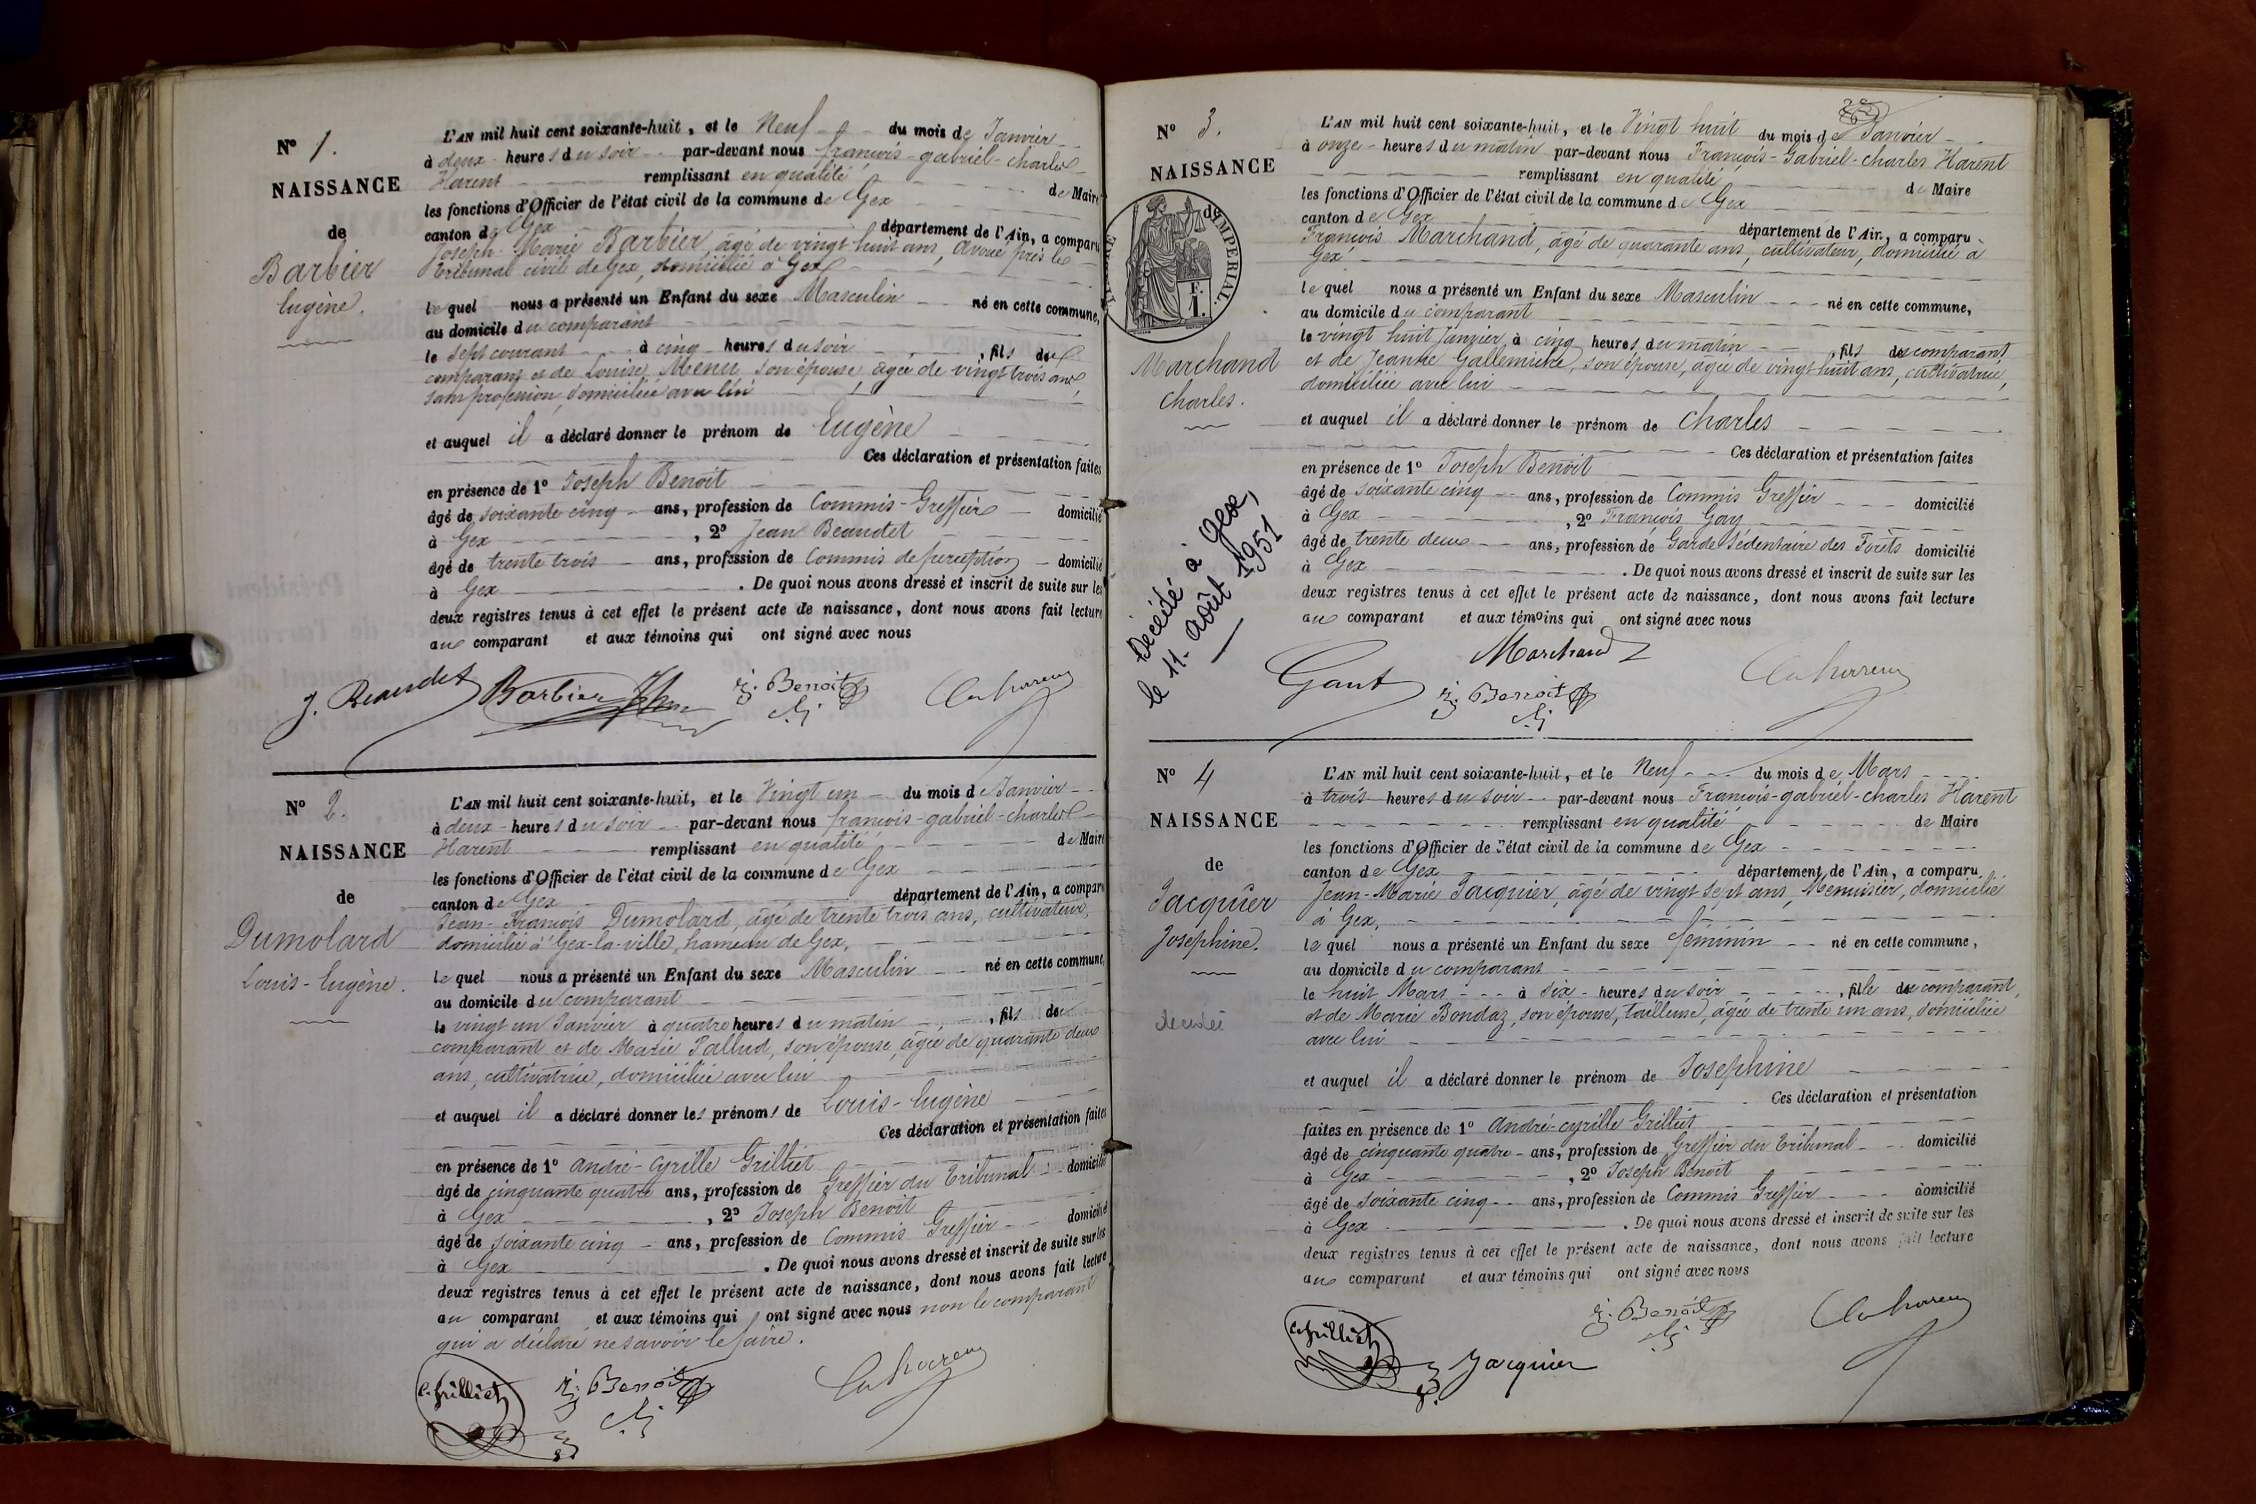 N° 1.
NAISSANCE
de
Barbier
Eugène.
L'AN mil huit cent soixante-huit, et le Neuf du mois de Janvier
à deux heures du soir par-devant nous françois-gabriel-charles
Harent remplissant en qualité de Maire
les fonctions d'Officier de l'état civil de la commune de Gex
canton de Gex département de l'Ain, a comparu
Joseph-Marie Barbier, âgé de vingt huit ans, avoué près le
tribunal civil de Gex, domicilié à Gex
lequel nous a présenté un Enfant du sexe Masculin né en cette commune,
au domicile du comparant
le sept courant à cinq heures du soir, fils du
comparant et de Louise Menu son épouse, âgée de vingt trois ans,
sans profession, domiciliée avec lui
et auquel il a déclaré donner le prénom de Eugène
Ces déclaration et présentation faites
en présence de 1° Joseph Benoit
âgé de soixante cinq ans, profession de Commis-Greffier domicilié
à Gex, 2° Jean Beaudet
âgé de trente trois ans, profession de Commis de perception domicilié
à Gex. De quoi nous avons dressé et inscrit de suite sur les
deux registres tenus à cet effet le présent acte de naissance, dont nous avons fait lecture
au comparant et aux témoins qui ont signé avec nous
J. Beaudet Barbier j. Benoit
N° 2.
NAISSANCE
de
Dumolard
Louis-Eugène.
L'AN mil huit cent soixante-huit, et le Vingt un du mois de Janvier
à deux heures du soir par-devant nous françois-gabriel-charles
Harent remplissant en qualité de Maire
les fonctions d'Officier de l'état civil de la commune de Gex
canton de Gex département de l'Ain, a comparu
Jean-François Dumolard, âgé de trente trois ans, cultivateur,
domicilié à Gex-la-ville, hameau de Gex,
lequel nous a présenté un Enfant du sexe Masculin né en cette commune,
au domicile du comparant
le vingt un Janvier à quatre heures du matin, fils du
comparant et de Marie Pallud, son épouse, âgée de quarante deux
ans, cultivatrice, domiciliée avec lui
et auquel il a déclaré donner les prénoms de Louis-Eugène
Ces déclaration et présentation faites
en présence de 1° André-Cyrille Grilliet
âgé de cinquante quatre ans, profession de Greffier du Tribunal domicilié
à Gex, 2° Joseph Benoit
âgé de soixante cinq ans, profession de Commis Greffier domicilié
à Gex. De quoi nous avons dressé et inscrit de suite sur les
deux registres tenus à cet effet le présent acte de naissance, dont nous avons fait lecture
au comparant et aux témoins qui ont signé avec nous non le comparant
qui a déclaré ne savoir le faire.
C. Grilliet j. Benoit
N° 3.
NAISSANCE
IMPERIAL.
F.
1.
Marchand
Charles.
Décédé à Gex,
le 11 août 1951
L'AN mil huit cent soixante-huit, et le Vingt huit du mois de Janvier
à onze heures du matin par-devant nous François-Gabriel-charles Harent
remplissant en qualité de Maire
les fonctions d'Officier de l'état civil de la commune de Gex
canton de Gex département de l'Ain, a comparu
François Marchand, âgé de quarante ans, cultivateur, domicilié à
Gex
lequel nous a présenté un Enfant du sexe Masculin né en cette commune,
au domicile du comparant
le vingt huit Janvier à cinq heures du matin, fils du comparant
et de Jeanne, son épouse, âgée de vingt huit ans, cultivatrice,
domiciliée avec lui
et auquel il a déclaré donner le prénom de Charles
Ces déclaration et présentation faites
en présence de 1° Joseph Benoit
âgé de soixante cinq ans, profession de Commis Greffier domicilié
à Gex, 2° François Gay
âgé de trente deux ans, profession de Garde Sédentaire des Forêts domicilié
à Gex. De quoi nous avons dressé et inscrit de suite sur les
deux registres tenus à cet effet le présent acte de naissance, dont nous avons fait lecture
au comparant et aux témoins qui ont signé avec nous
Marchand
j. Benoit
N° 4
NAISSANCE
de
Jacquier
Josephine.
L'AN mil huit cent soixante-huit, et le Neuf du mois de Mars
à trois heures du soir par-devant nous François-gabriel-charles Harent
remplissant en qualité de Maire
les fonctions d'Officier de l'état civil de la commune de Gex
canton de Gex département de l'Ain, a comparu
Jean-Marie Jacquier, âgé de vingt sept ans, Menuisier, domicilié
à Gex,
lequel nous a présenté un Enfant du sexe féminin né en cette commune,
au domicile du comparant
le huit Mars à six heures du soir, fille du comparant,
et de Marie Bondaz, son épouse, tailleuse, âgée de trente un ans, domiciliée
avec lui
et auquel il a déclaré donner le prénom de Josephine
Ces déclaration et présentation
faites en présence de 1° André-cyrille Grilliet
âgé de cinquante quatre ans, profession de Greffier du Tribunal domicilié
à Gex, 2° Joseph Benoit
âgé de soixante cinq ans, profession de Commis Greffier domicilié
à Gex. De quoi nous avons dressé et inscrit de suite sur les
deux registres tenus à cet effet le présent acte de naissance, dont nous avons fait lecture
au comparant et aux témoins qui ont signé avec nous
C. Grilliet Jacquier j. Benoit